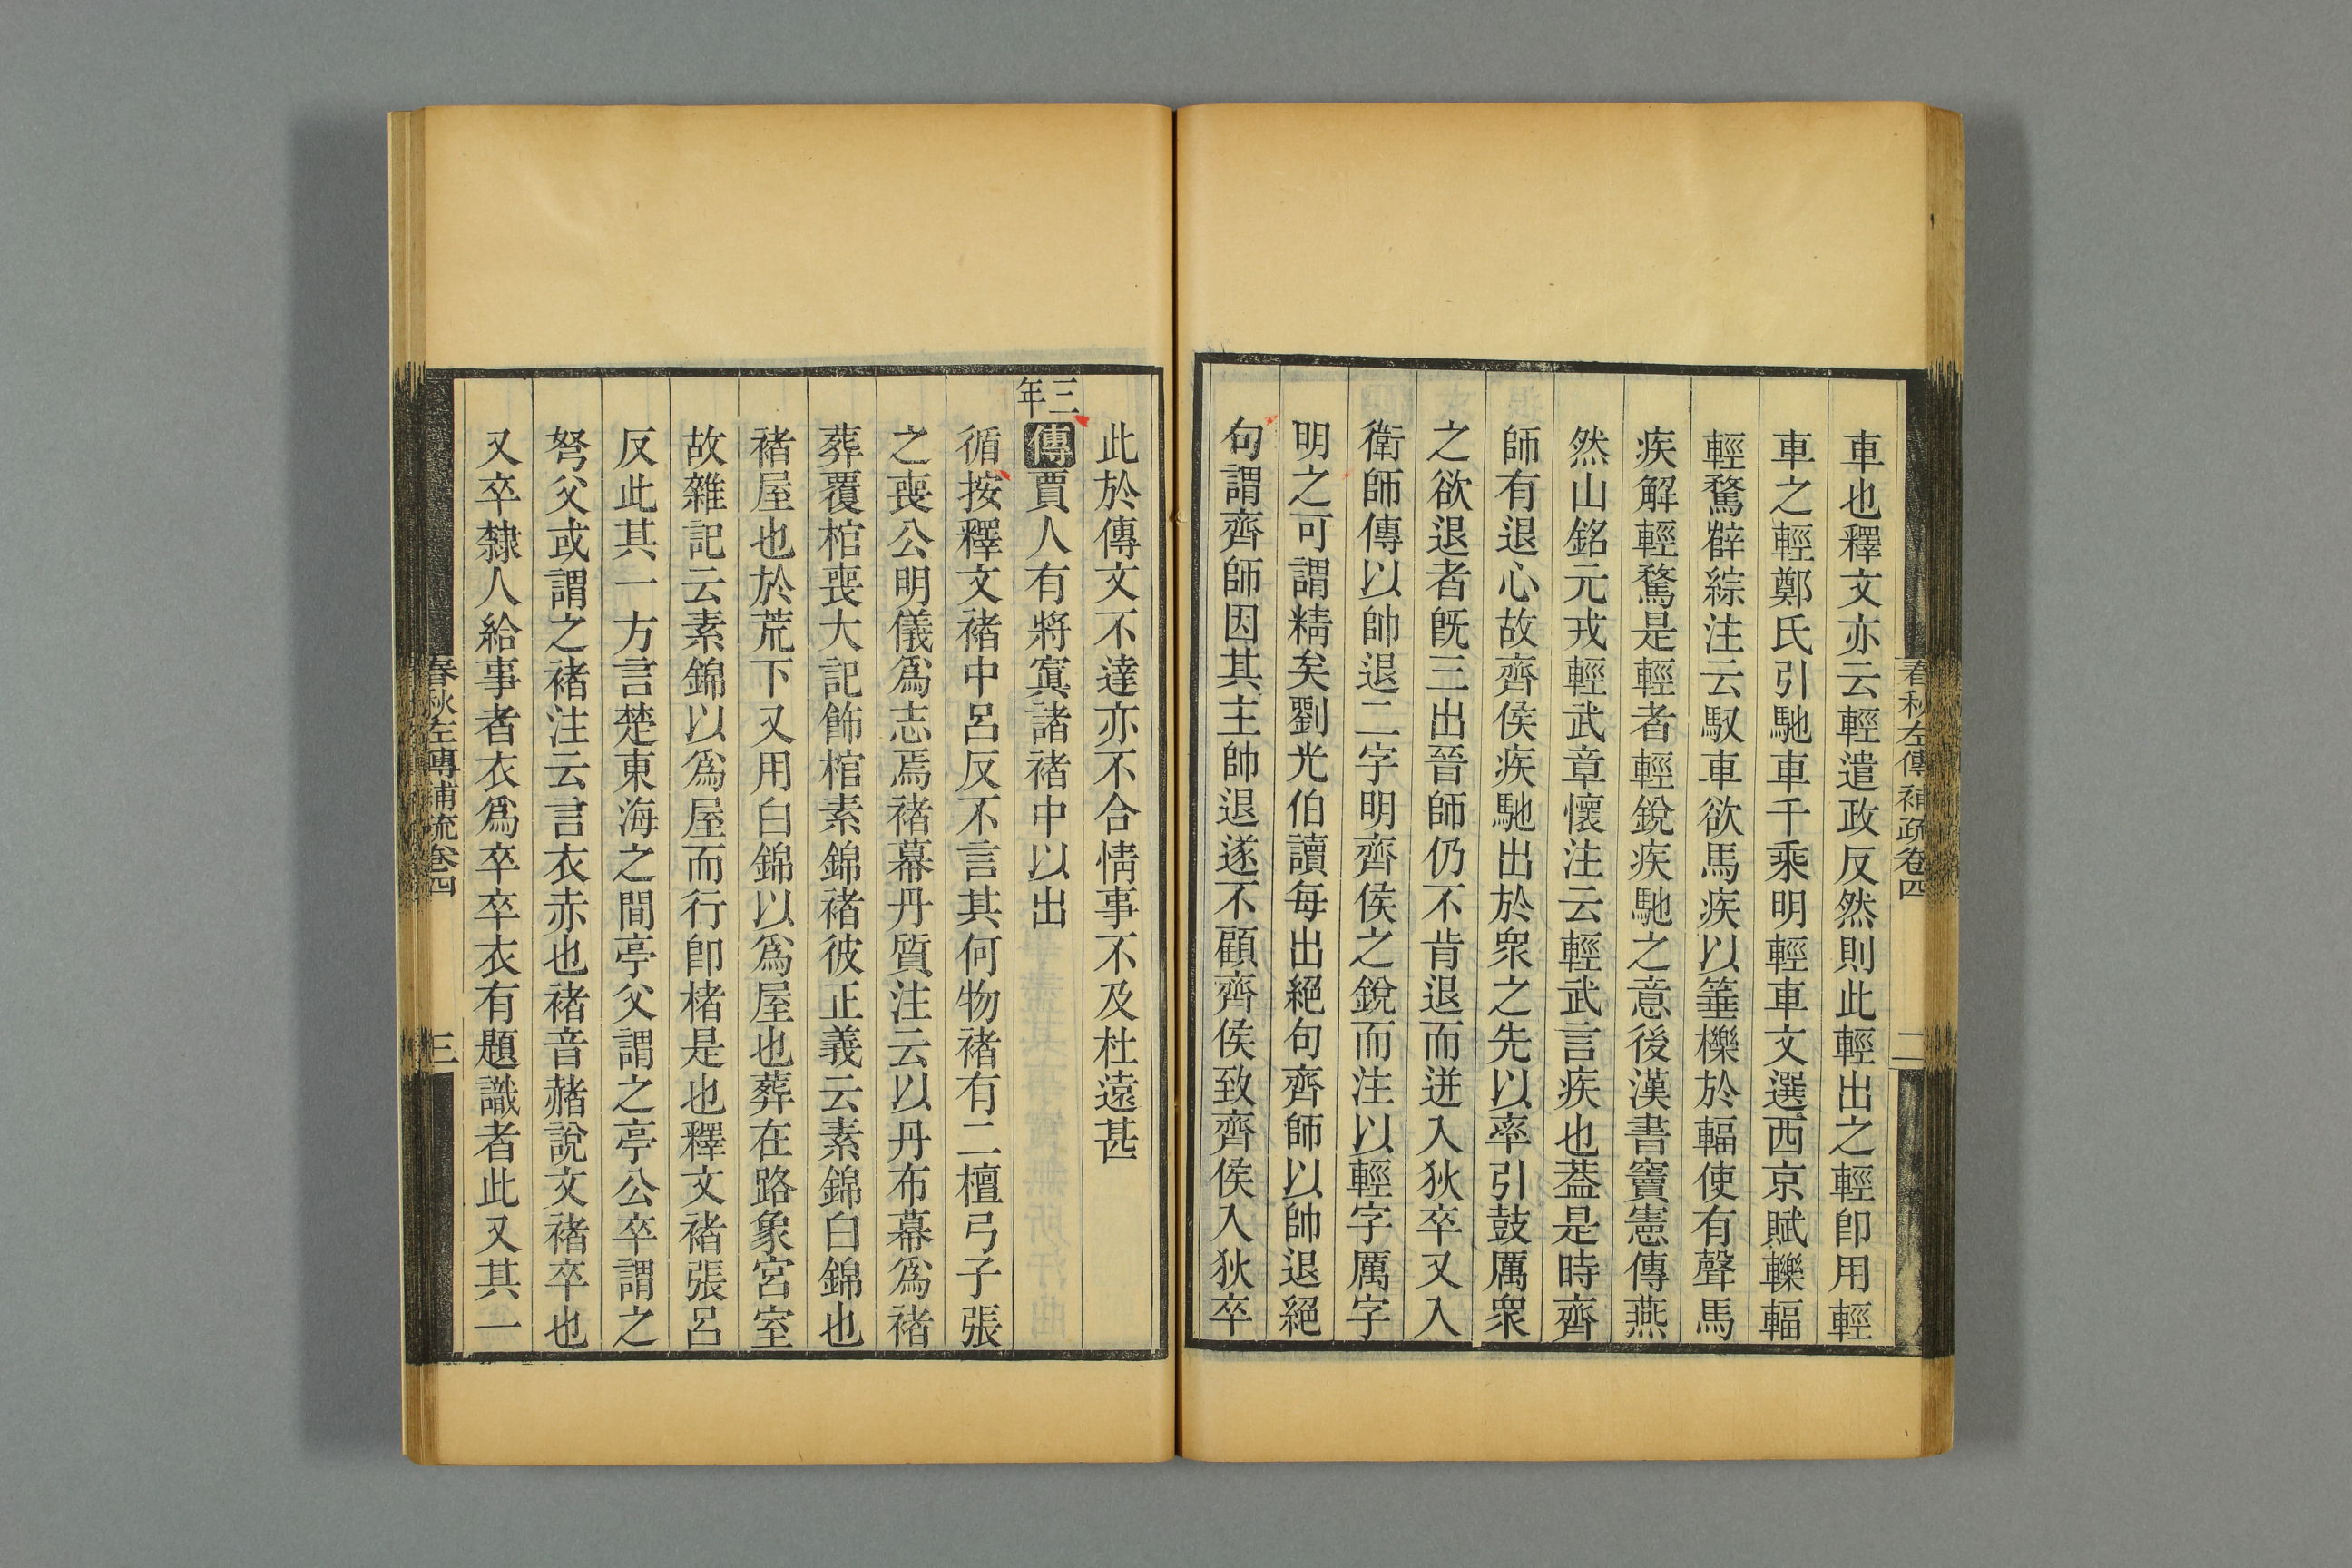 春秋左傳補疏卷四 二
車也釋文亦云輕遣政反然則此輕出之輕卽用輕
車之輕鄭氏引馳車千乘明輕車文選西京賦轢輻
輕騖薛綜注云馭車欲馬疾以箠櫟於輻使有聲馬
疾解輕騖是輕者輕銳疾馳之意後漢書竇憲傳燕
然山銘元戎輕武章懷注云輕武言疾也葢是時齊
師有退心故齊侯疾馳出於衆之先以率引鼓厲衆
之欲退者旣三出晉師仍不肯退而迸入狄卒又入
衛師傳以帥退二字明齊侯之銳而注以輕字厲字
明之可謂精矣劉光伯讀每出絕句齊師以帥退絕
句謂齊師因其主帥退遂不顧齊侯致齊侯入狄卒
此於傳文不達亦不合情事不及杜遠甚
三年傳賈人有將寘諸褚中以出
循按釋文褚中呂反不言其何物褚有二檀弓子張
之喪公明儀爲志焉褚幕丹質注云以丹布幕爲褚
葬覆棺喪大記飾棺素錦褚彼正義云素錦白錦也
褚屋也於荒下又用白錦以爲屋也葬在路象宮室
故雜記云素錦以爲屋而行卽楮是也釋文褚張呂
反此其一方言楚東海之間亭父謂之亭公卒謂之
弩父或謂之褚注云言衣赤也褚音赭說文褚卒也
又卒隸人給事者衣爲卒卒衣有題識者此又其一
春秋左傳補疏卷四 三